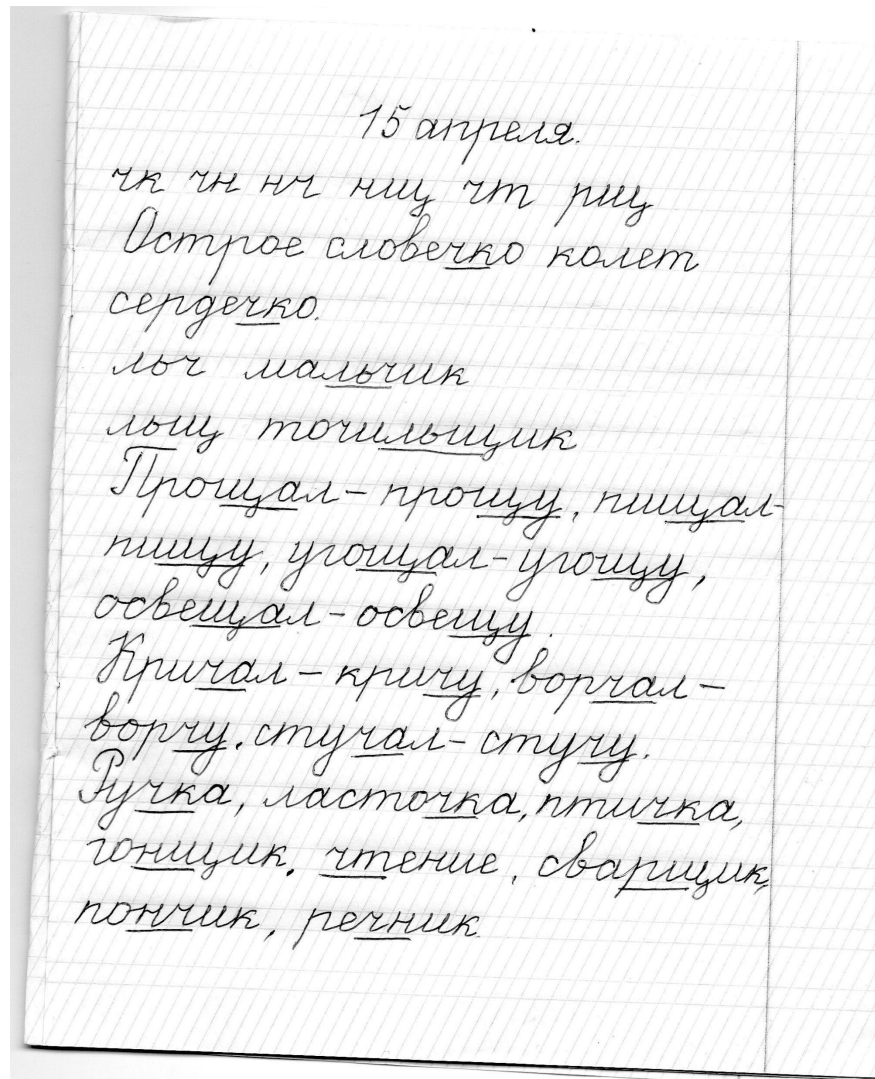 15 апреля.
чк чн нч нщ чт рщ
Острое словечко колет
сердечко.
льч мальчик
льщ точильщик
Прощал – прощу, пищал –
пищу, угощал – угощу,
освещал – освещу.
Кричал – кричу, ворчал –
ворчу, стучал – стучу.
Ручка, ласточка, птичка,
гонщик, чтение, сварщик,
пончик, речник.